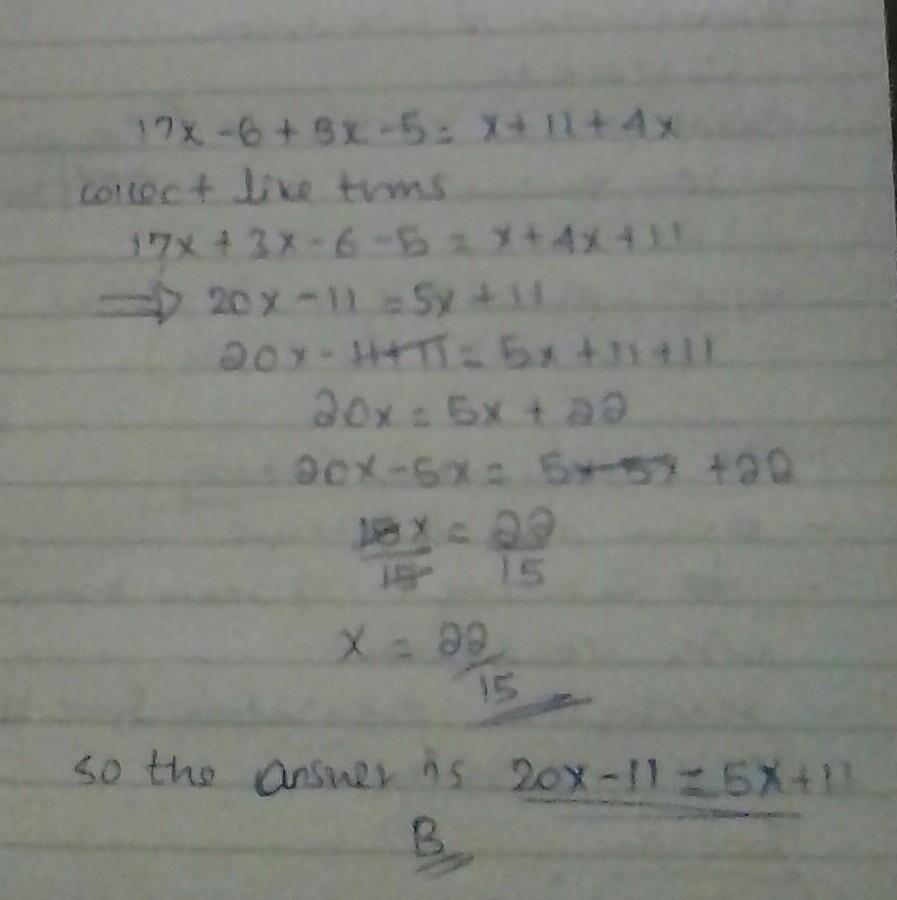 17x - 6 + 3x - 5 = x + 11 + 4x
collect like tirms
17x + 3x - 6 - 5 = x + 4x + 11
⇒ 20x - 11 = 5x + 11
20x - 11 + 11 = 5x + 11 + 11
20x = 5x + 22
20x - 5x = 5x - 5x + 22
15x/15 = 22/15
x = 22/15
so the answer is 20x - 11 = 5x + 11
B